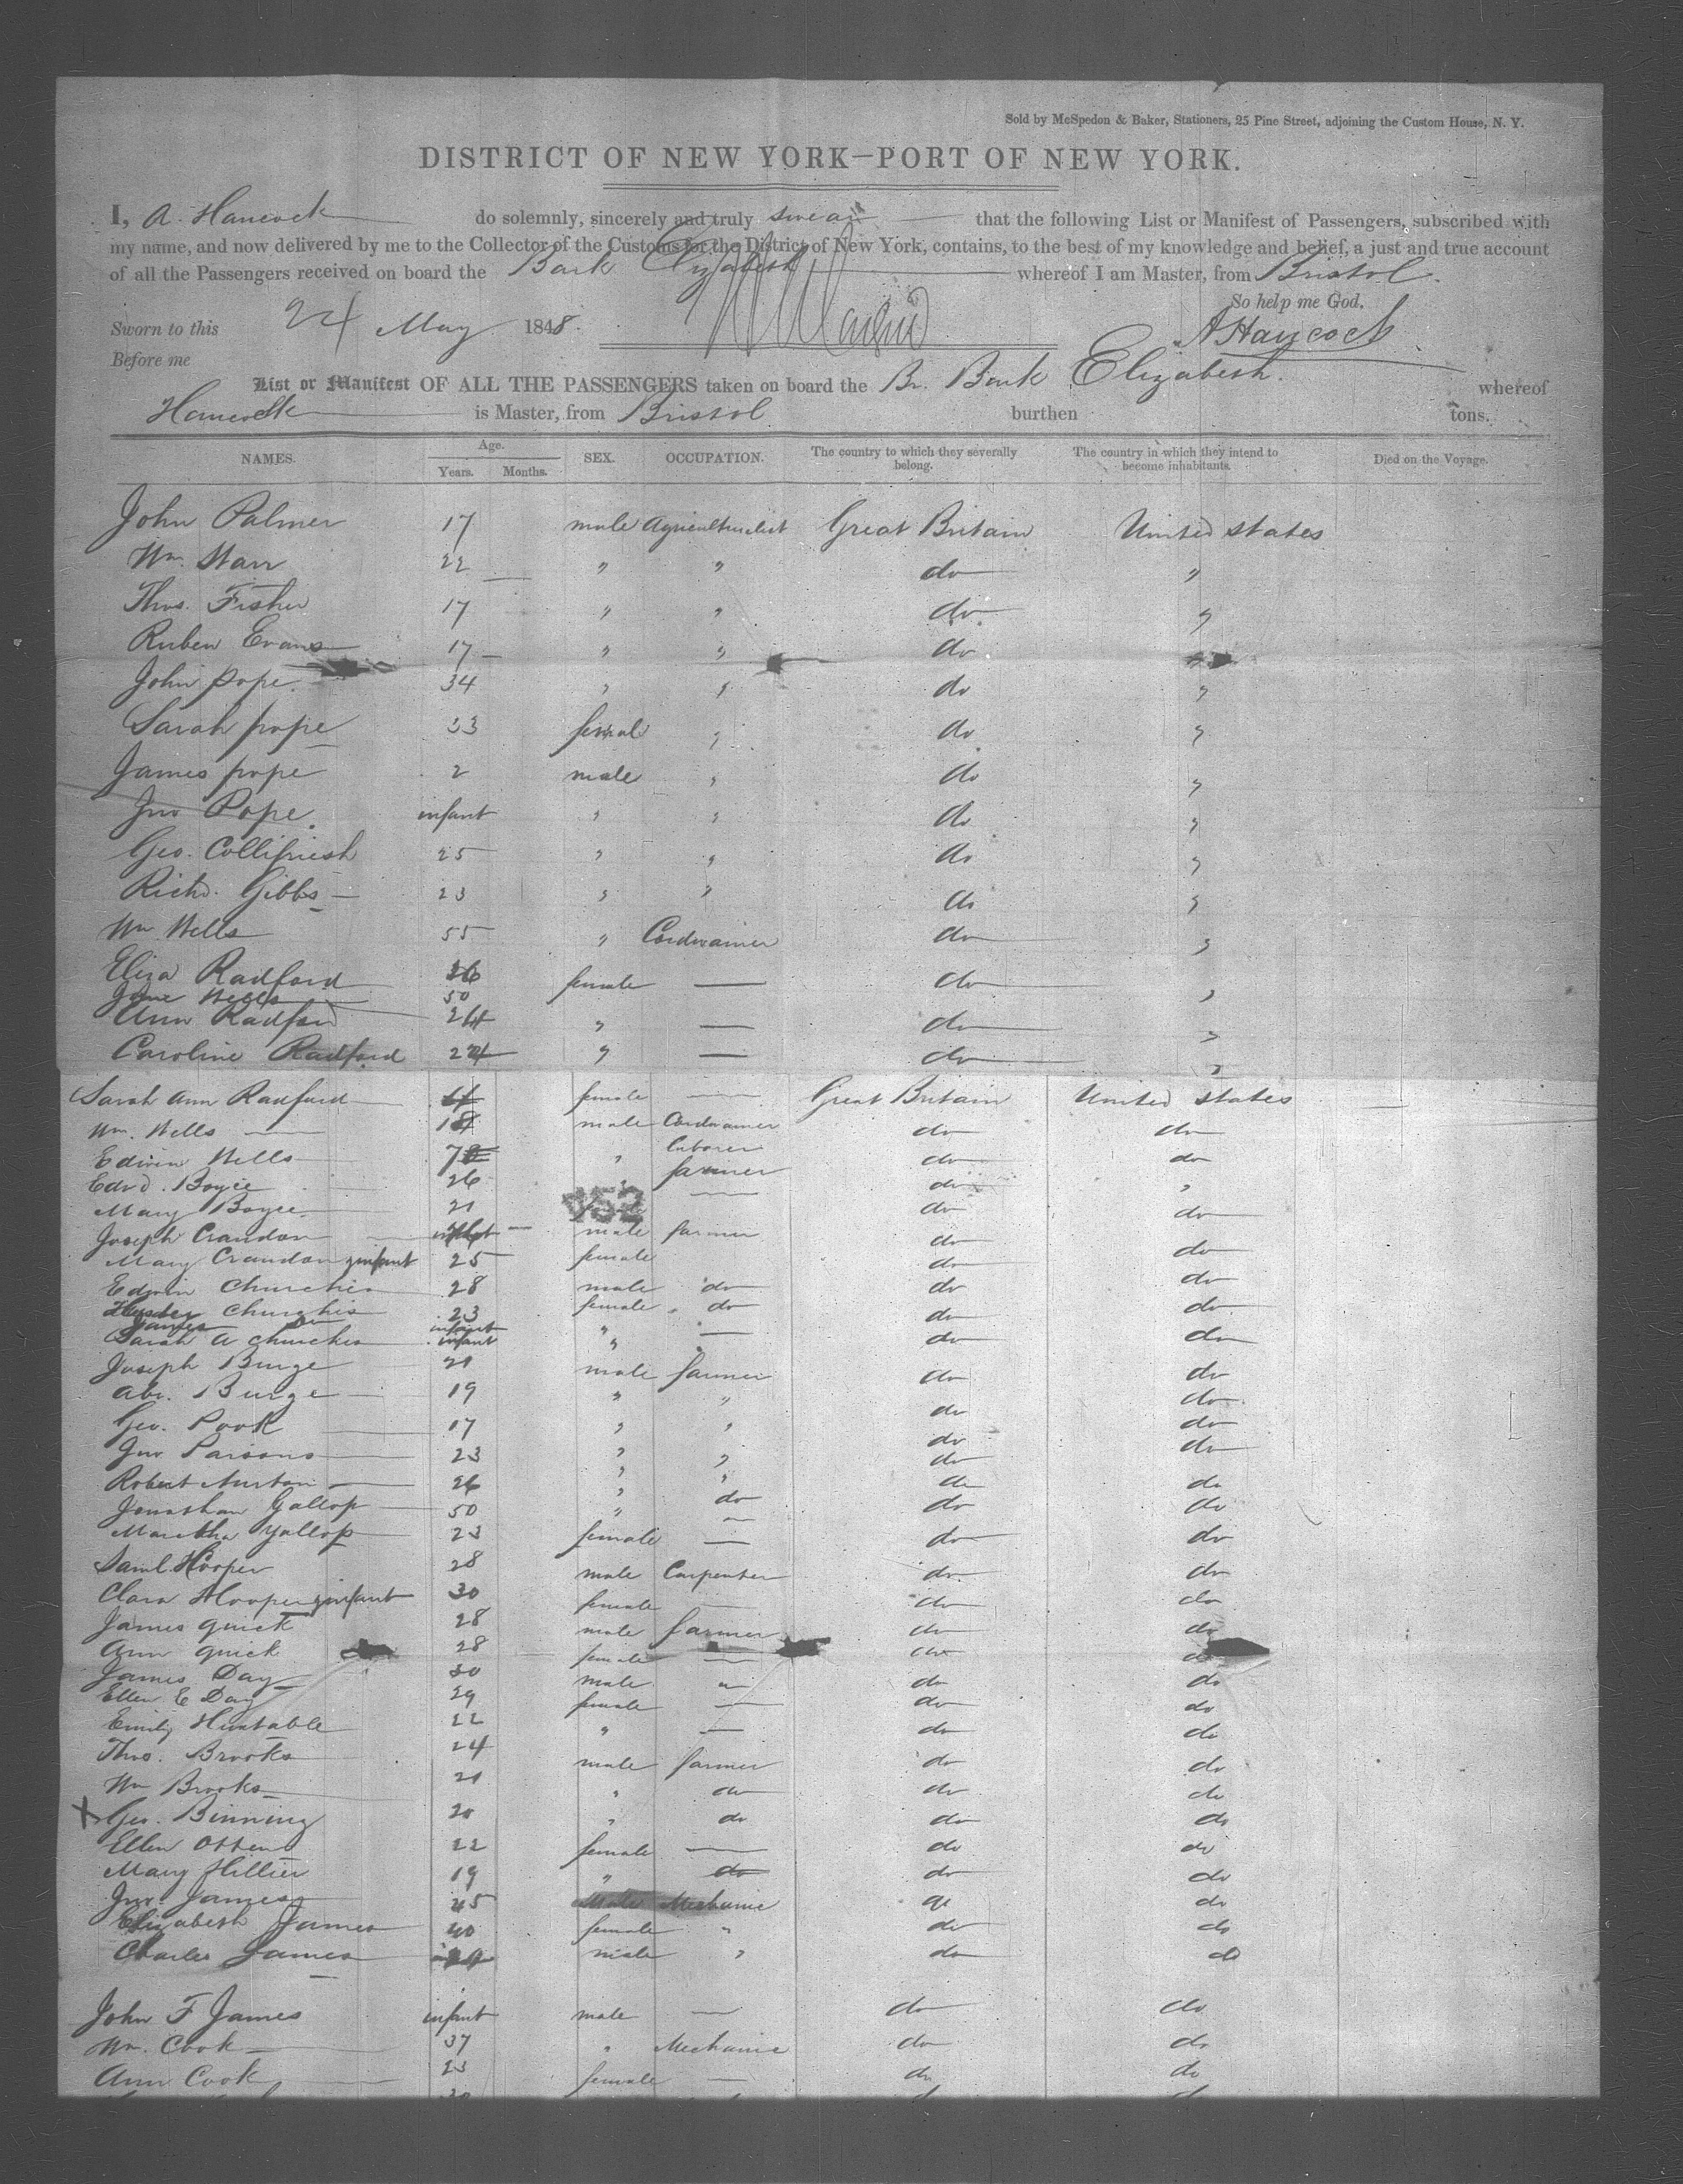 Sold by McSpedon & Baker, Stationers, 25 Pine Street, adjoining the Custom House, N. Y.
DISTRICT OF NEW YORK—PORT OF NEW YORK.
I, A. Hancock do solemnly, sincerely and truly swear that the following List or Manifest of Passengers, subscribed with
my name, and now delivered by me to the Collector of the Customs for the District of New York, contains, to the best of my knowledge and belief, a just and true account
of all the Passengers received on board the Bark Elizabeth whereof I am Master, from Bristol.
So help me God.
Sworn to this 24 May 1848.
A Hancock
Before me
List or Manifest OF ALL THE PASSENGERS taken on board the Br. Bark Elizabeth. whereof
Hancock is Master, from Bristol burthen tons.
NAMES. Age. Years. Months. SEX. OCCUPATION. The country to which they severally belong. The country in which they intend to become inhabitants. Died on the Voyage.
John Palmer 17 male Agriculturalist Great Britain United states
Wm. Starr 22 " " do "
Thos. Fisher 17 " " do "
Ruben Evans 17 " " do "
John pope 34 " " do "
Sarah pope 33 female " do "
James pope 2 male " do "
Jno Pope infant " " do "
Geo. 25 " " do "
Richd. Gibbs 23 " " do "
Wm Wells 55 " Cordwainer do "
Eliza Radford female — do "
Jane Wells 50
Ann Radford " — do "
Caroline Radford " — do "
Sarah Ann Radford female — Great Britain United states
Wm. Wells male Cordwainer do do
Edwin Wells " laborer do do
Edwd. Boyce 26 farmer do "
Mary Boyce 21 — do do
Joseph Crandon male farmer do
Mary Crandon & infant 25 female do do
Edwin Churches 28 male do do do
Churches 23 female do do do
James Do infant "
Sarah A Churches infant " — do do
Joseph Burge 21 male farmer do do
Abr. Burge 19 " " do do
Geo. Pook 17 " " do do
Jno Parsons 23 " " do do
Robert 26 " " do do
Jonathan Gallop 50 " do do do
Martha Gallop 23 female — do do
Saml. Hooper 28 male Carpenter do do
Clara Hooper & infant 30 female — do do
James quick 28 male farmer do do
Ann quick 28 female — do do
James Day 30 male " do do
Ellen E Day 29 female — do do
Emily Huxtable 22 " — do do
Thos. Brooks 24 male farmer do do
Wm Brooks 21 " do do do
X Geo. Binning 20 " do do do
Ellen 22 female — do do
Mary Hillier 19 " do do do
Jno. James 45 Male Mechanic do do
Elizabeth James 40 female " do do
Charles James male " do do
John F James infant male — do do
Wm. Cook 37 " Mechanic do do
Ann Cook 23 female — do do